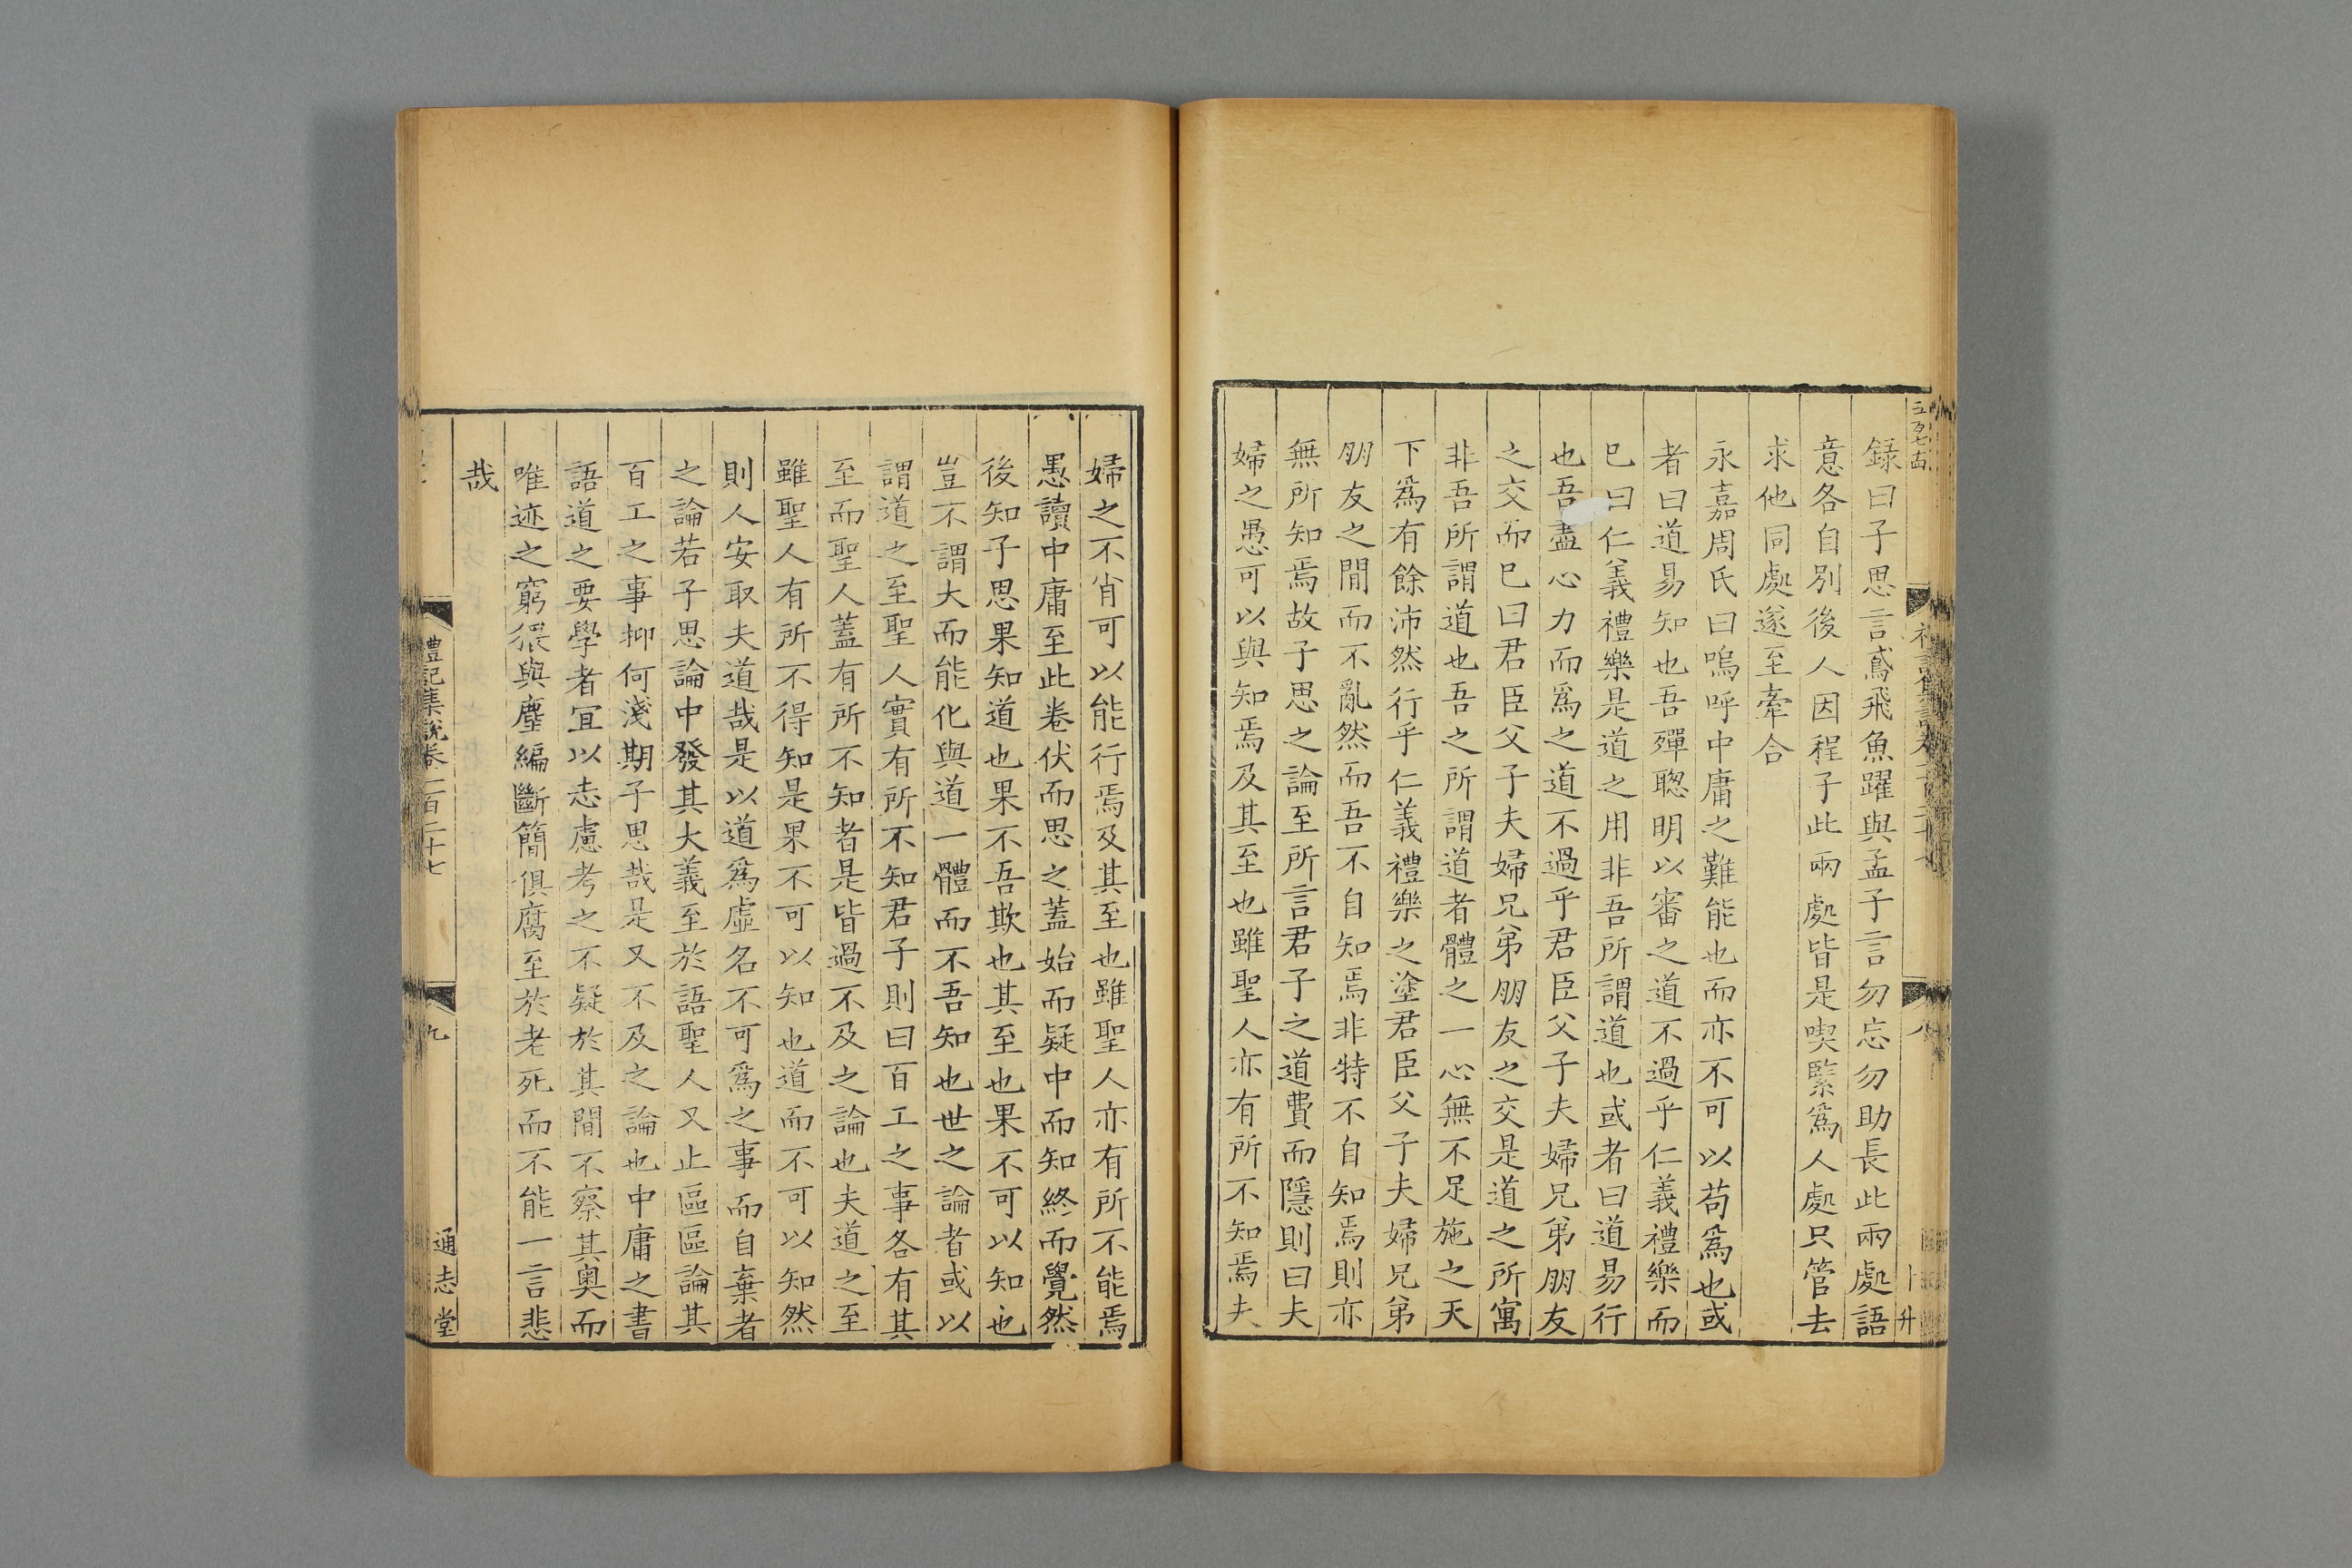 錄曰子思言鳶飛魚躍與孟子言勿忘勿助長此兩處語
意各自別後人因程子此兩處皆是喫緊爲人處只管去
求他同處遂至牽合
永嘉周氏曰嗚呼中庸之難能也而亦不可以苟爲也或
者曰道易知也吾殫聰明以審之道不過乎仁義禮樂而
巳曰仁義禮樂是道之用非吾所謂道也或者曰道易行
也吾盡心力而爲之道不過乎君臣父子夫婦兄弟朋友
之交而巳曰君臣父子夫婦兄弟朋友之交是道之所寓
非吾所謂道也吾之所謂道者體之一心無不足施之天
下爲有餘沛然行乎仁義禮樂之塗君臣父子夫婦兄弟
朋友之閒而不亂然而吾不自知焉非特不自知焉則亦
無所知焉故子思之論至所言君子之道費而隱則曰夫
婦之愚可以與知焉及其至也雖聖人亦有所不知焉夫
婦之不肖可以能行焉及其至也雖聖人亦有所不能焉
愚讀中庸至此卷伏而思之蓋始而疑中而知終而覺然
後知子思果知道也果不吾欺也其至也果不可以知也
豈不謂大而能化與道一體而不吾知也世之論者或以
謂道之至聖人實有所不知君子則曰百工之事各有其
至而聖人蓋有所不知者是皆過不及之論也夫道之至
雖聖人有所不得知是果不可以知也道而不可以知然
則人安取夫道哉是以道爲虛名不可爲之事而自棄者
之論若子思論中發其大義至於語聖人又止區區論其
百工之事抑何淺期子思哉是又不及之論也中庸之書
語道之要學者宜以志慮考之不疑於其間不察其奧而
唯迹之窮猥與塵編斷簡俱腐至於老死而不能一言悲
哉
禮記集說卷一百二十七
九
通志堂